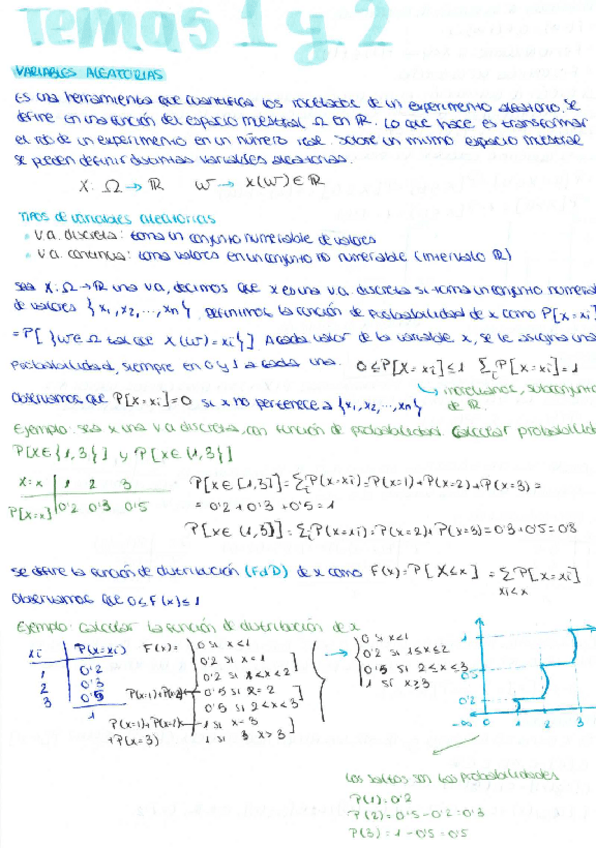 Temas 1 y 2
VARIABLES ALEATORIAS
Es una herramienta que cuantifica los resultados de un experimento aleatorio. Se
define en una función del espacio muestral Ω en ℝ. Lo que hace es transformar
el rdo de un experimento en un número real. Sobre un mismo espacio muestral
se pueden definir distintas variables aleatorias.
X: Ω → ℝ   w → X(w) ∈ ℝ
TIPOS de variables aleatorias
• v.a. discreta: toma un conjunto numerable de valores
• v.a. continua: toma valores en un conjunto no numerable (intervalo ℝ)
sea X: Ω → ℝ una v.a, decimos que x es una v.a. discreta si toma un conjunto
de valores {x1, x2, ..., xn}. Definimos la función de probabilidad de x como P[X=xi]
= P[{w ∈ Ω tal que X(w)=xi}] A cada valor de la variable x, se le asigna una
probabilidad, siempre en 0 y 1 a cada una. 0≤P[X=xi]≤1 Σi P[X=xi]=1
subconjunto
de ℝ.
Observamos que P[X=xi]=0 si x no pertenece a {x1, x2, ..., xn}
Ejemplo: sea x una v.a discreta, con función de probabilidad. Calcular probabilidad
P[X∈{1,3}] y P[X∈(1,3)]
X=x | 1 2 3
P[X=x] | 0'2 0'3 0'5
P[X∈[1,3]]=Σi P(X=xi)=P(x=1)+P(x=2)+P(x=3)=
= 0'2+0'3+0'5=1
P[X∈(1,3]]=Σi P(X=xi)=P(x=2)+P(x=3)=0'3+0'5=0'8
se define la función de distribución (FdD) de x como F(x)=P[X≤x] = Σ P[X=xi]
xi<x
Observamos que 0≤F(x)≤1
Ejemplo: Calcular la función de distribución de x
xi | P(X=xi)
1 | 0'2
2 | 0'3
3 | 0'5
1
F(x)=
0 si x<1
0'2 si x=1
0'2 si 1<x<2
P(x=1)+P(x=2) 0'5 si x=2
0'5 si 2<x<3
P(x=1)+P(x=2) 1 si x=3
+P(x=3) 1 si x>3
0 si x<1
0'2 si 1≤x<2
0'5 si 2≤x<3
1 si x≥3
1
0'5
0'2
-∞ 0 1 2 3
Los saltos son las probabilidades
P(1)=0'2
P(2)=0'5-0'2=0'3
P(3)=1-0'5=0'5